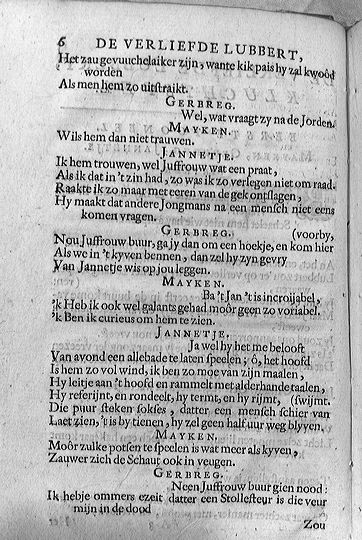 6 DE VERLIEFDE LUBBERT,
Het zau gevuuchelaiker zijn, wante kik pais hy zal kwoôd
worden
Als men hem zo uitstraikt.
GERBREG.
Wel, wat vraagt zy na de Jorden.
MAYKEN.
Wils hem dan niet trauwen.
JANNETJE.
Ik hem trouwen, wel Juffrouw wat een praat,
Als ik dat in 't zin had, zo was ik zo verlegen niet om raad.
Raakte ik zo maar met eeren van de gek ontslagen,
Hy maakt dat andere Jongmans na een mensch niet eens
komen vragen.
GERBREG. (voorby,
Nou Juffrouw buur, ga jy dan om een hoekje, en kom hier
Als we in 't kyven bennen, dan zel hy zyn gevry
Van Jannetje wis op jou leggen.
MAYKEN.
Ba 't Jan 't is incroijabel,
'k Heb ik ook wel galants gehad moôr geen zo voriabel.
'k Ben ik curieus om hem te zien.
JANNETJE.
Ja wel hy het me belooft
Van avond een allebade te laten speelen; ô, het hoofd
Is hem zo vol wind, ik ben zo moe van zijn maalen,
Hy leit je aan 't hoofd en rammelt met alderhande taalen,
Hy referijnt, en rondeelt, hy termt, en hy rijmt, (swijmt.
Die puur steken sokses, datter een mensch schier van
Laet zien, 't is by tienen, hy zel geen half uur weg blyven,
MAYKEN.
Moôr zulke potsen te speelen is wat meer als kyven,
Zauwer zich de Schaut ook in veugen.
GERBREG.
Neen Juffrouw buur gien nood:
Ik hebje ommers ezeit datter een Stollesteur is die veur
mijn in de dood
Zou